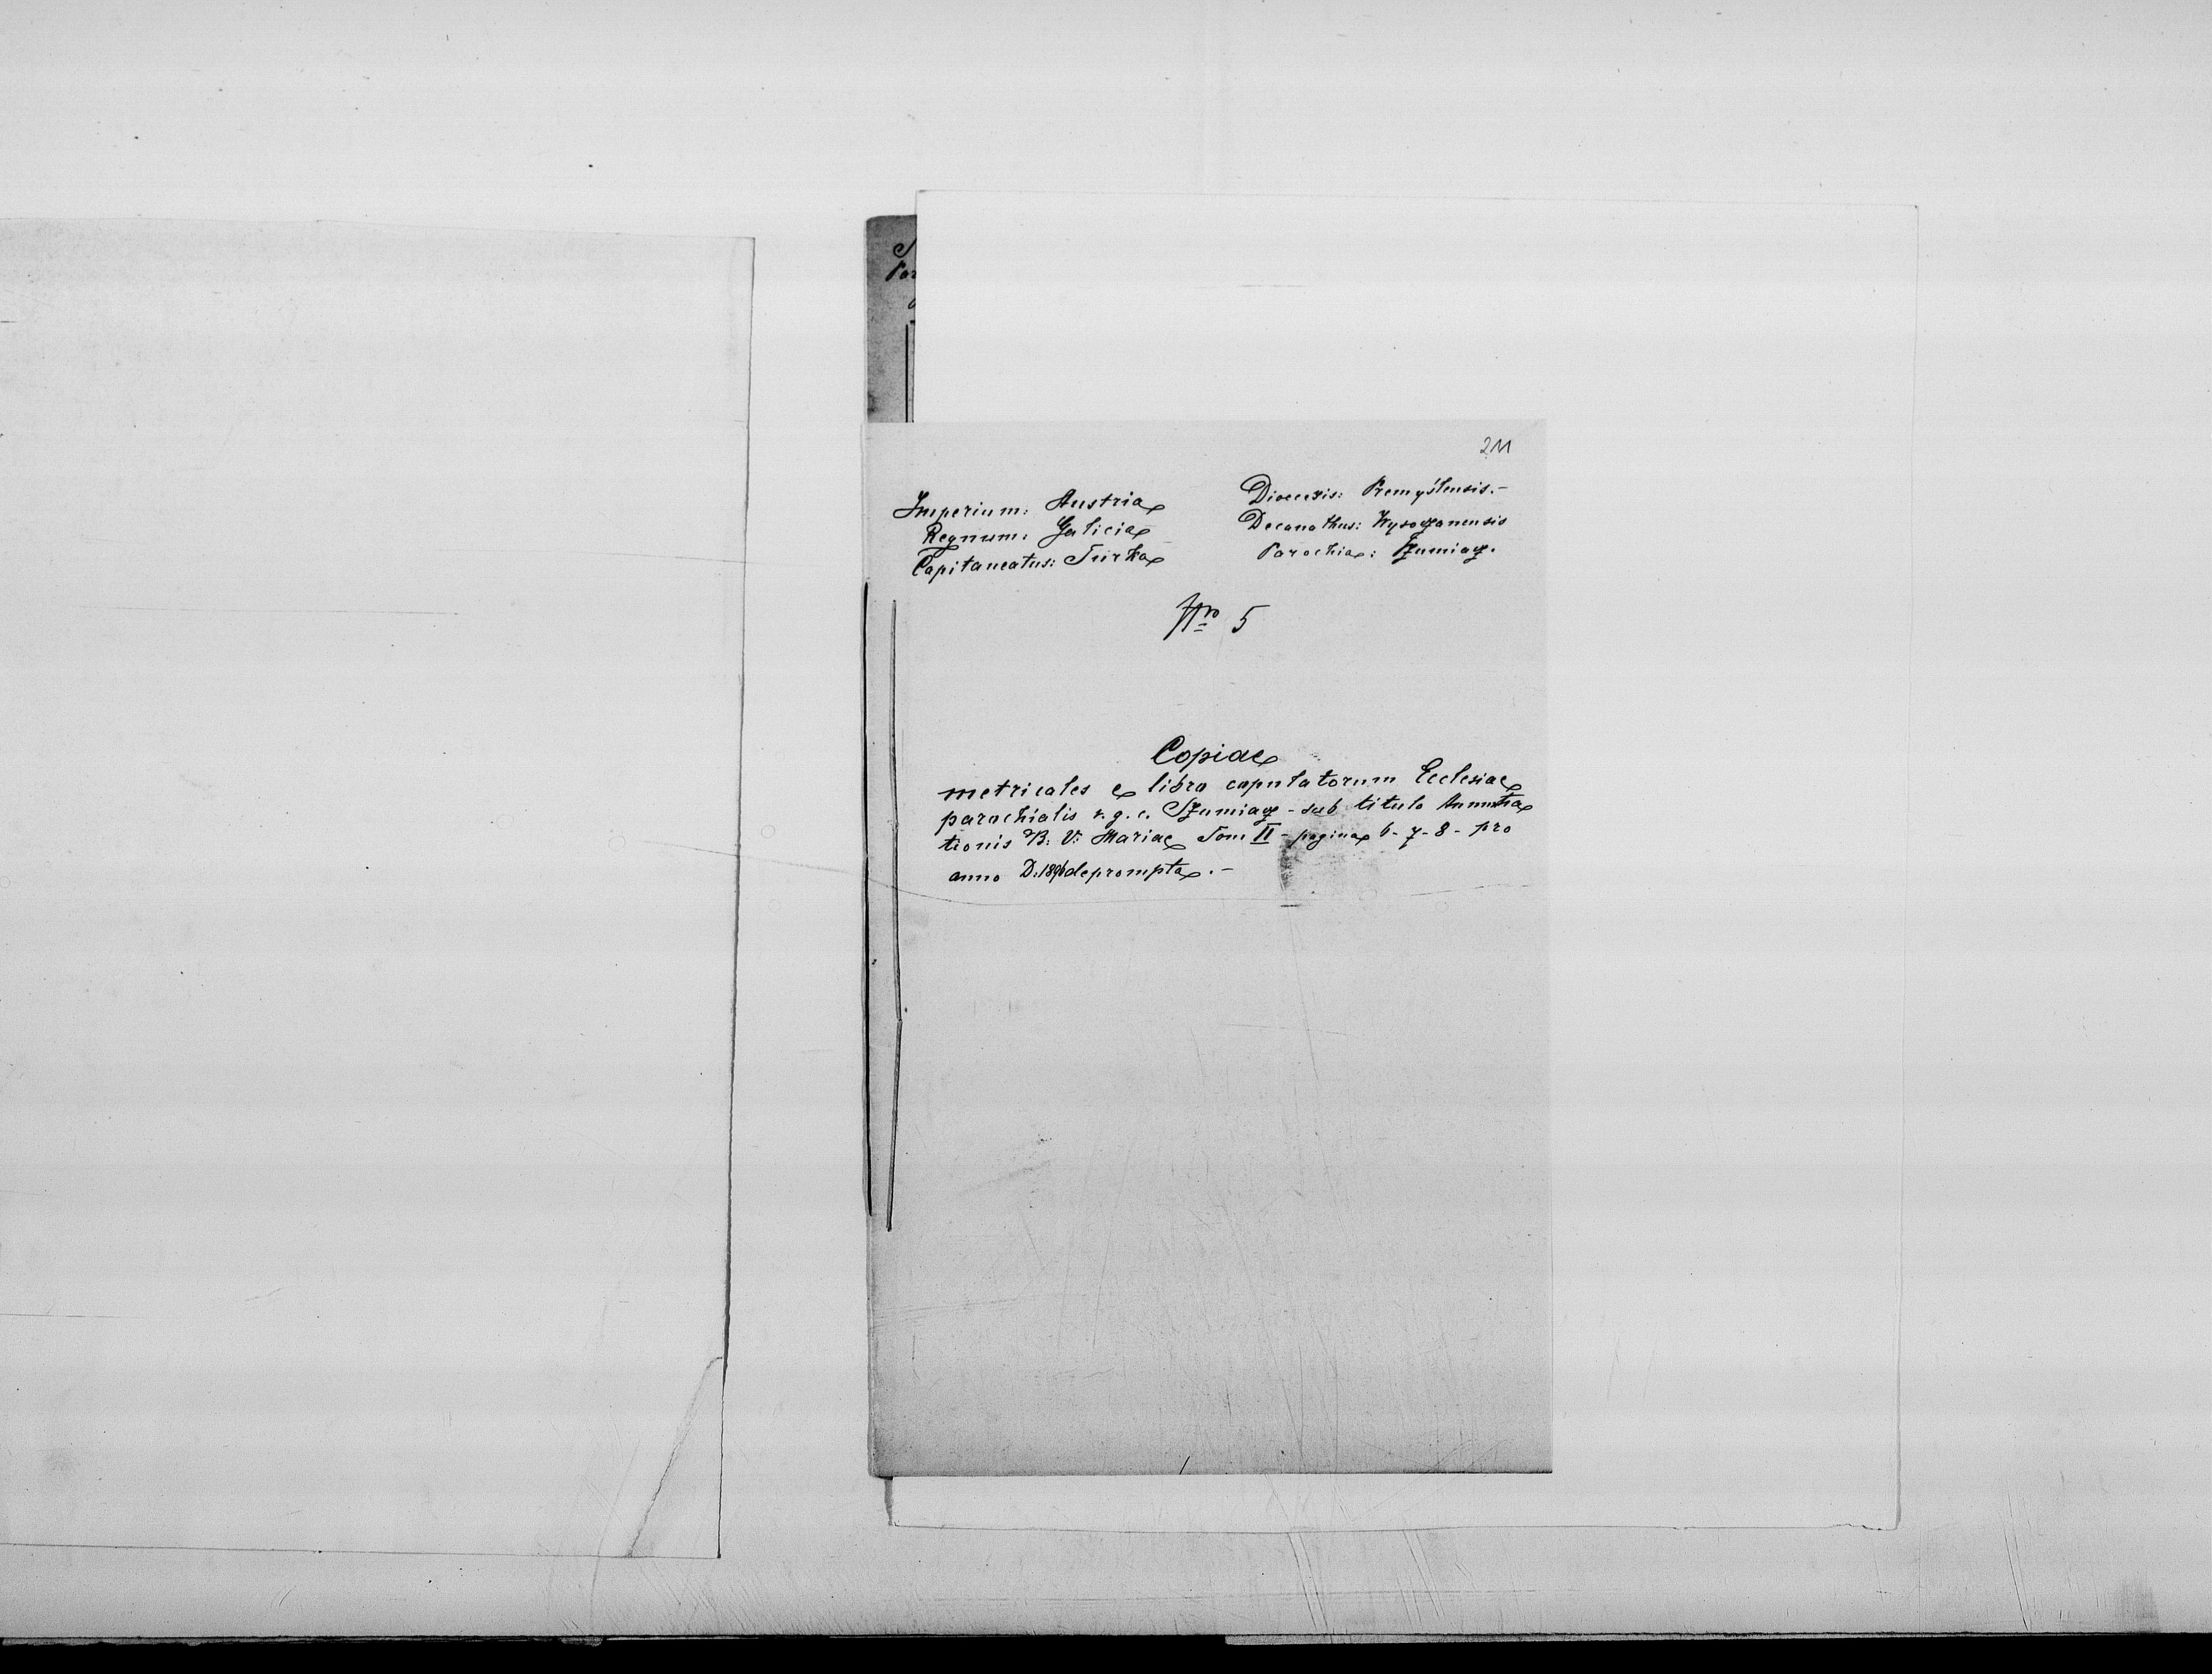 211
Imperium: Austria
Regnum: Galicia
Capitaneatus: Turka
Dioecesis: Premyślensis.-
Decanathus: Wysoczanensis
Parochia: Szumiacz.
Nro 5
Copiae
metricales e libro copulatorum Ecclesiae
parochialis r. g. c. Szumiacz - sub titulo Annuntia
tionis B. V. Mariae Tom II - pagina 6 - 7 - 8 - pro
anno D. deprompta. -